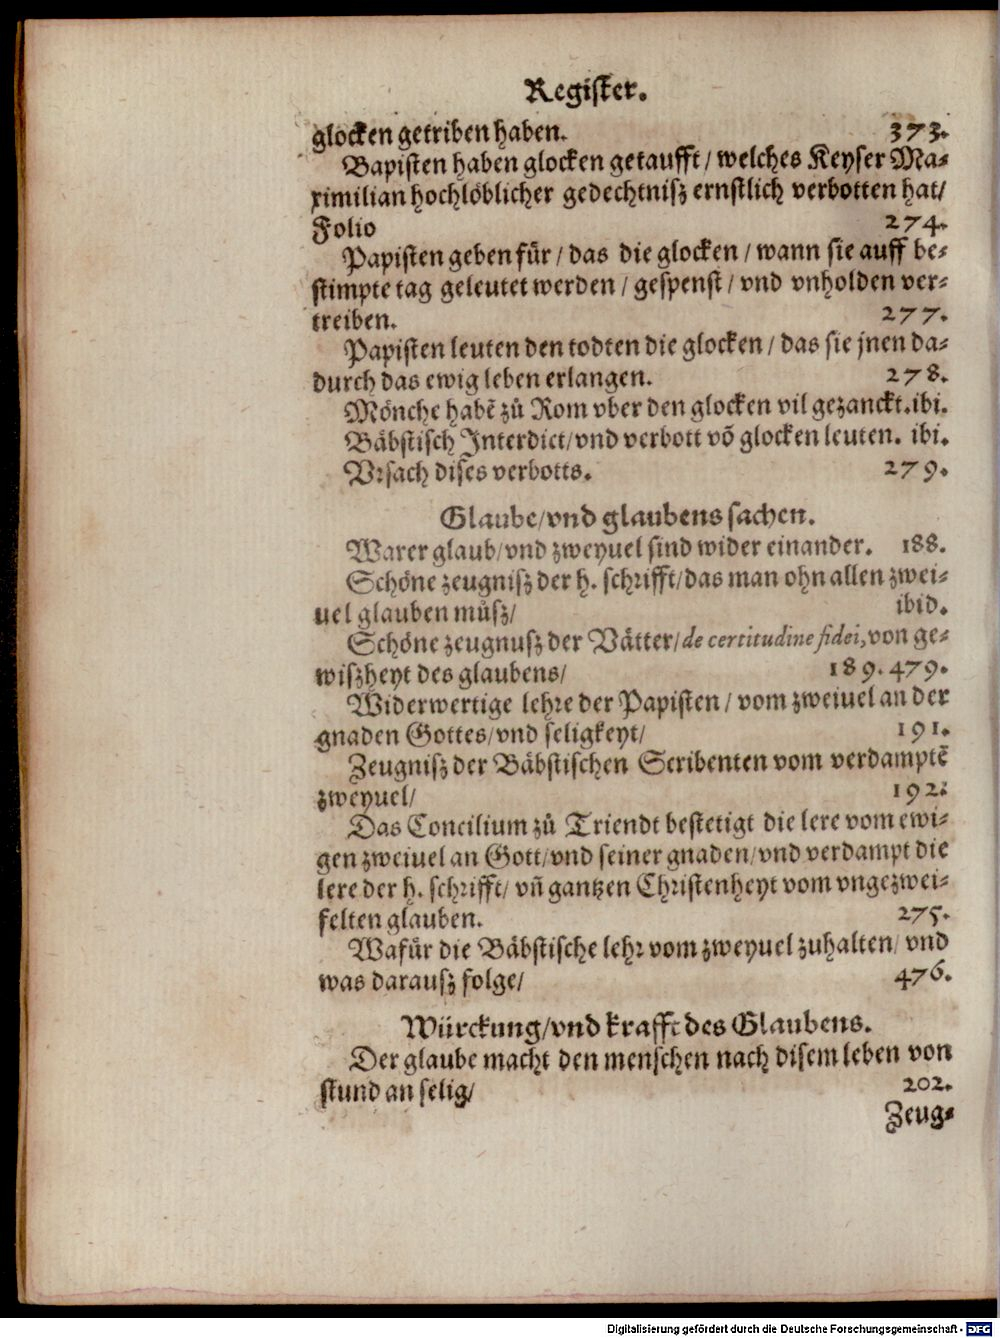 Register.
glocken getriben haben. 373.
Bapisten haben glocken getaufft / welches Keyser Ma-
ximilian hochlöblicher gedechtnisz ernstlich verbotten hat/
Folio 274.
Papisten geben für / das die glocken / wann sie auff be-
stimpte tag geleutet werden / gespenst / vnd vnholden ver-
treiben. 277.
Papisten leuten den todten die glocken / das sie jnen da-
durch das ewig leben erlangen. 278.
Mönche habẽ zů Rom vber den glocken vil gezanckt. ibi.
Bäbstisch Interdict/vnd verbott võ glocken leuten. ibi.
Vrsach dises verbotts. 279.
Glaube/vnd glaubens sachen.
Warer glaub/vnd zweyuel sind wider einander. 188.
Schöne zeugnisz der h. schrifft/das man ohn allen zwei-
uel glauben můsz/ ibid.
Schöne zeugnusz der Vätter/de certitudine fidei, von ge-
wiszheyt des glaubens/ 189. 479.
Widerwertige lehre der Papisten / vom zweiuel an der
gnaden Gottes/vnd seligkeyt/ 191.
Zeugnisz der Bäbstischen Scribenten vom verdamptẽ
zweyuel/ 192.
Das Concilium zů Triendt bestetigt die lere vom ewi-
gen zweiuel an Gott/vnd seiner gnaden/vnd verdampt die
lere der h. schrifft/ vñ gantzen Christenheyt vom vngezwei-
felten glauben. 275.
Wafür die Bäbstische lehr vom zweyuel zuhalten/ vnd
was darausz folge/ 476.
Würckung/vnd krafft des Glaubens.
Der glaube macht den menschen nach disem leben von
stund an selig/ 202.
Zeug-
Digitalisierung gefördert durch die Deutsche Forschungsgemeinschaft - DFG